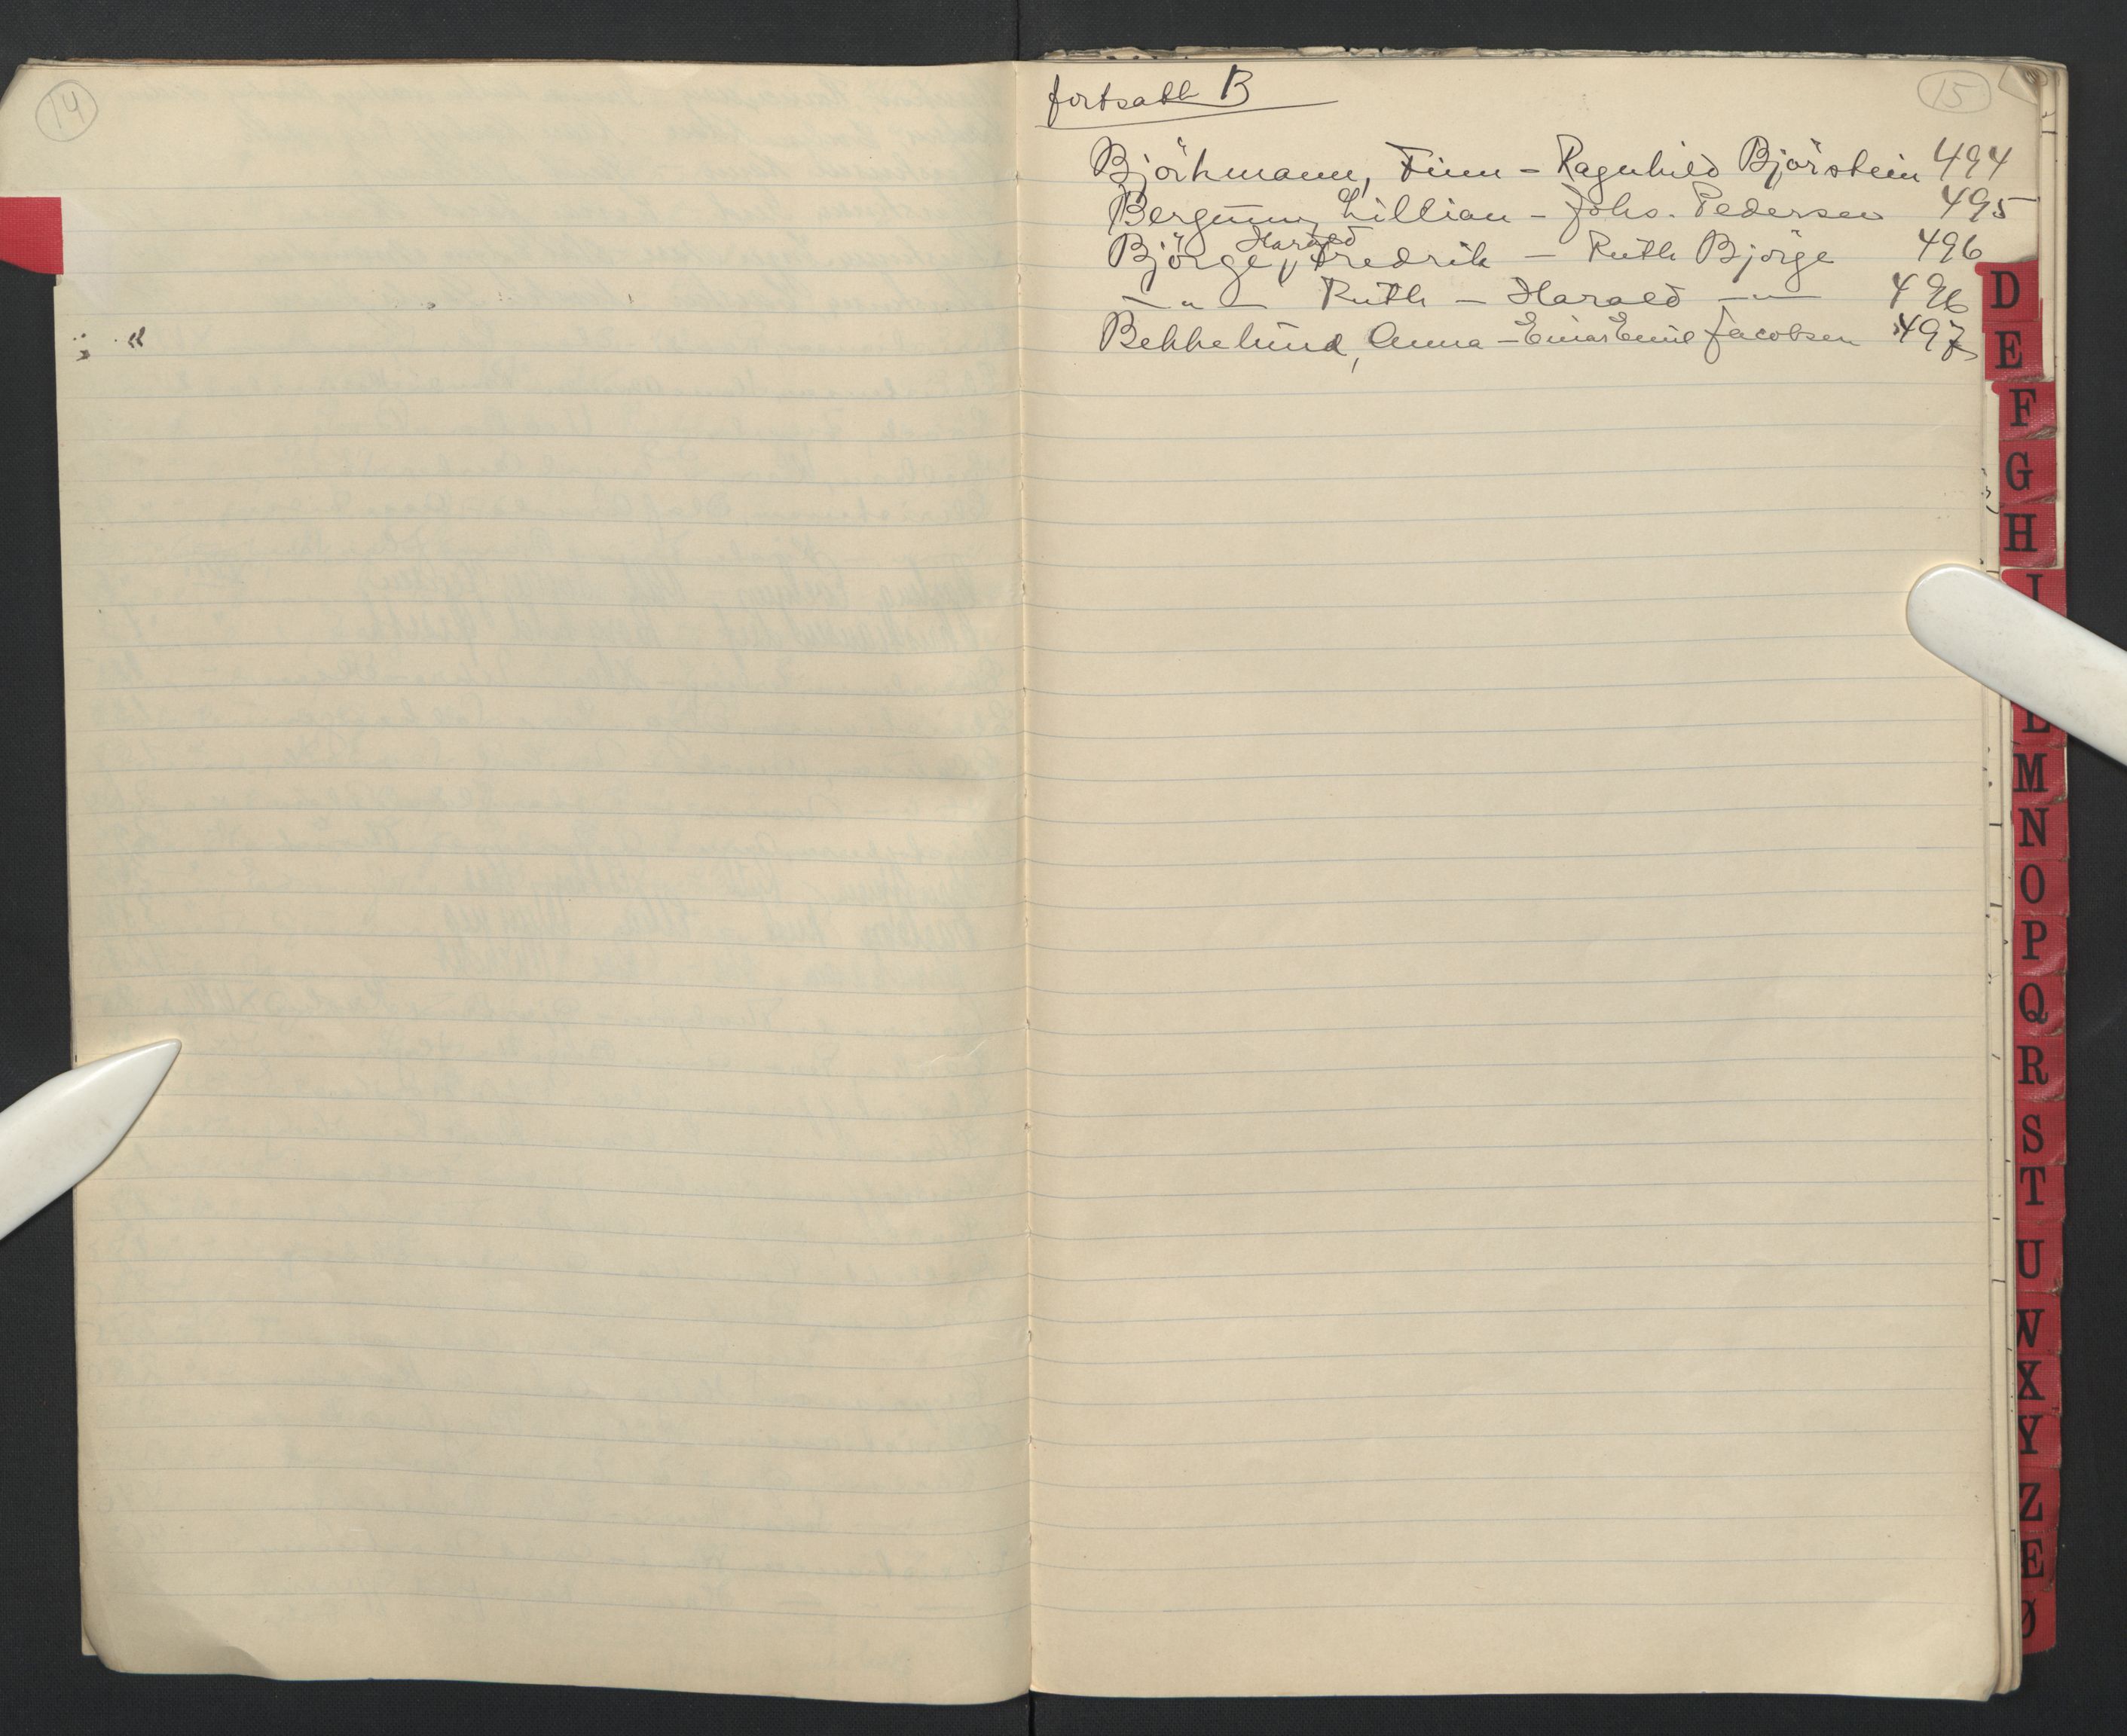 14
15
fortsatt B
Björkmann, Finn - Ragnhild Björstein 494
Bergmann, Lillian - Johs. Pedersen 495
Björge, Harald Fredrik - Ruth Björge 496
— " — Ruth - Harald — " — 496
Bekkelund, Anna - Einar Emil Jacobsen 497
D
E
F
G
H
I
L
M
N
O
P
Q
R
S
T
U
W
X
Y
Z
Æ
Ø